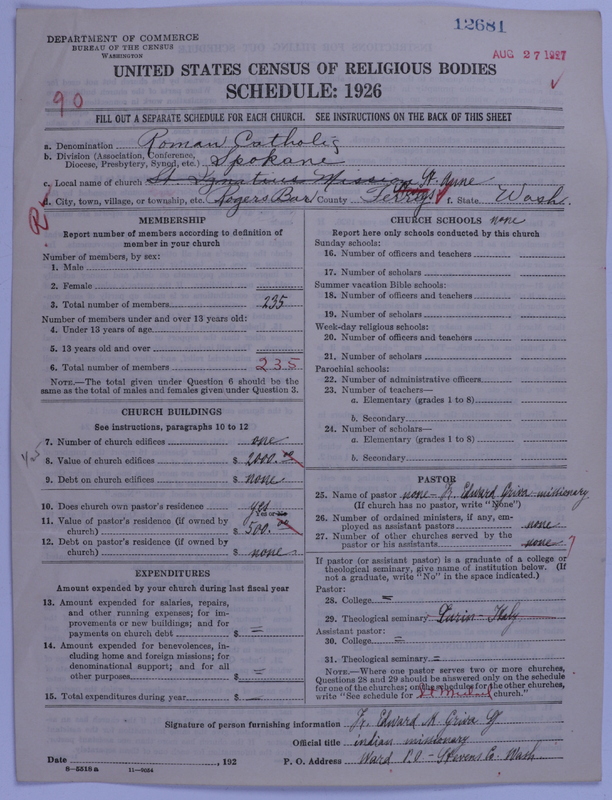 12681
DEPARTMENT OF COMMERCE
BUREAU OF THE CENSUS
WASHINGTON
AUG 27 1927
UNITED STATES CENSUS OF RELIGIOUS BODIES
SCHEDULE: 1926
90
FILL OUT A SEPARATE SCHEDULE FOR EACH CHURCH. SEE INSTRUCTIONS ON THE BACK OF THIS SHEET
a. Denomination Roman Catholic
b. Division (Association, Conference, Diocese, Presbytery, Synod, etc.) Spokane
c. Local name of church St. Ignatius Mission St. Anne
d. City, town, village, or township, etc. Rogers Bar County Ferry f. State Wash.
R
MEMBERSHIP
Report number of members according to definition of
member in your church
Number of members, by sex:
1. Male
2. Female
3. Total number of members 235
Number of members under and over 13 years old:
4. Under 13 years of age
5. 13 years old and over
6. Total number of members 235
NOTE.—The total given under Question 6 should be
the same as the total of males and females given under Question 3.
CHURCH BUILDINGS
See instructions, paragraphs 10 to 12
7. Number of church edifices one
8. Value of church edifices $ 2000.00
9. Debt on church edifices $ none
10. Does church own pastor's residence yes
Yes or No
11. Value of pastor's residence (if owned by
church) $ 500.00
12. Debt on pastor's residence (if owned by
church) $ none
EXPENDITURES
Amount expended by your church during last fiscal year
13. Amount expended for salaries, repairs,
and other running expenses; for im-
provements or new buildings; and for
payments on church debt $ =
14. Amount expended for benevolences, in-
cluding home and foreign missions; for
denominational support; and for all
other purposes $ =
15. Total expenditures during year $ =
CHURCH SCHOOLS none
Report here only schools conducted by this church
Sunday schools:
16. Number of officers and teachers
17. Number of scholars
Summer vacation Bible schools:
18. Number of officers and teachers
19. Number of scholars
Week-day religious schools:
20. Number of officers and teachers
21. Number of scholars
Parochial schools:
22. Number of administrative officers
23. Number of teachers—
a. Elementary (grades 1 to 8)
b. Secondary
24. Number of scholars—
a. Elementary (grades 1 to 8)
b. Secondary
PASTOR
25. Name of pastor none - Fr. Edward Griva - missionary
(If church has no pastor, write "None")
26. Number of ordained ministers, if any, em-
ployed as assistant pastors none
27. Number of other churches served by the
pastor or his assistants none 7
If pastor (or assistant pastor) is a graduate of a college or
theological seminary, give name of institution below. (If
not a graduate, write "No" in the space indicated.)
Pastor:
28. College =
29. Theological seminary Turin - Italy
Assistant pastor:
30. College =
31. Theological seminary =
NOTE.—Where one pastor serves two or more churches,
Questions 28 and 29 should be answered only on the schedule
for one of the churches; on the schedules for the other churches,
write "See schedule for St Michael church."
Signature of person furnishing information Fr. Edward M. Griva SJ
Official title indian missionary
Date , 192
P. O. Address Ward P.O - Stevens Co. Wash
8—5518 a 11—9024